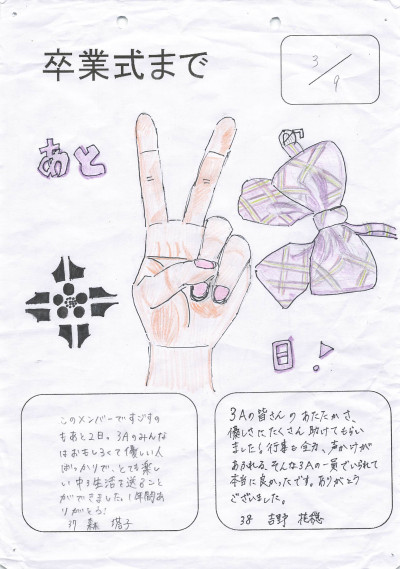 卒業式まで
3/9
あと
日!
このメンバーですごすの
もあと2日。3Aのみんな
はおもしろくて優しい人
ばっかりで、とても楽し
い中3生活を送ること
ができました。1年間あ
りがとう!
37 森 塔子
3Aの皆さんのあたたかさ、
優しさに、たくさん助けてもらい
ました!行事も全力、声かけが
あふれる、そんな3Aの一員でいられて
本当に良かったです。ありがとう
ございました。
38 吉野 花穂